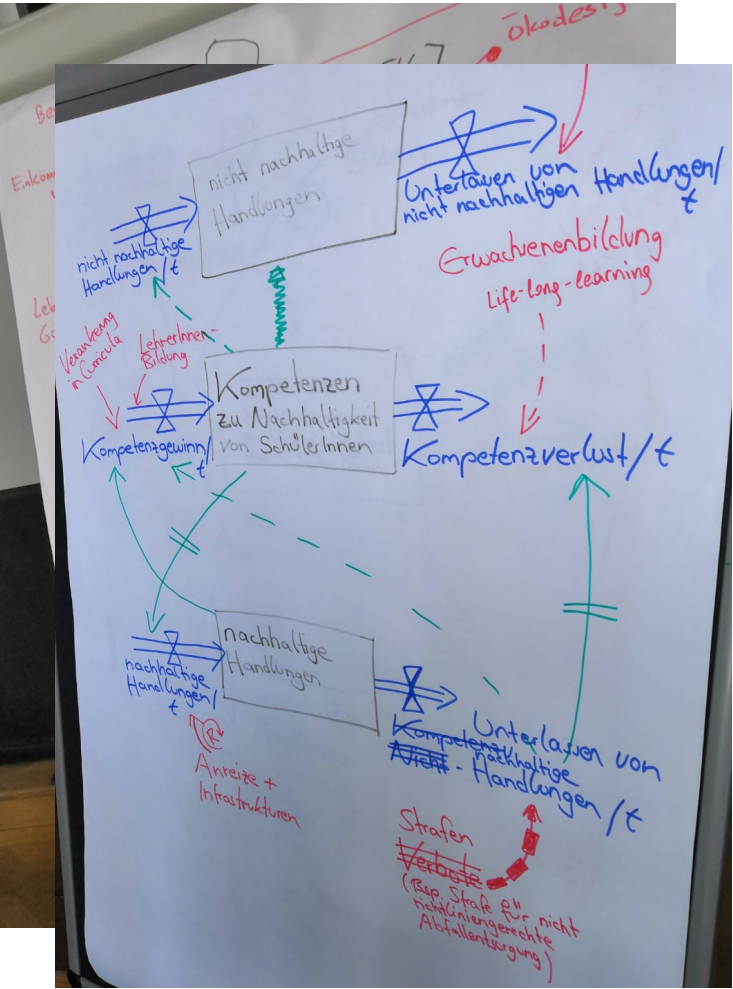 Ökodesig
Be
Einkom
Leh
G
nicht nachhaltige
Handlungen
Unterlassen von
nicht nachhaltigen Handlungen/
t
nicht nachhaltige
Handlungen/t
Erwachsenenbildung
Life-long-learning
Verankerung
in Curricula
LehrerInnen-
Bildung
Kompetenzen
zu Nachhaltigkeit
von SchülerInnen
Kompetenzgewinn/
t
Kompetenzverlust/t
nachhaltige
Handlungen
nachhaltige
Handlungen/
t
R
Anreize +
Infrastrukturen
Kompetenz Unterlassen von
nachhaltige
Nicht - Handlungen/t
Strafen
Verbote
(Bsp. Strafe für nicht
richtliniengerechte
Abfallentsorgung)